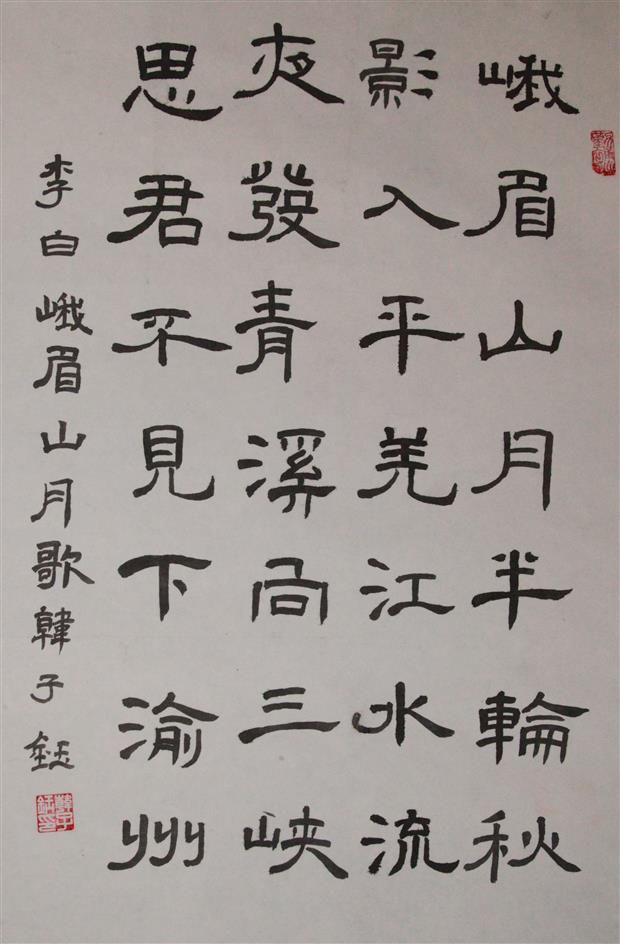 峨眉山月半輪秋
影入平羌江水流
夜發青溪向三峡
思君不見下渝州
李白峨眉山月歌韓子鈺
韓子鈺印